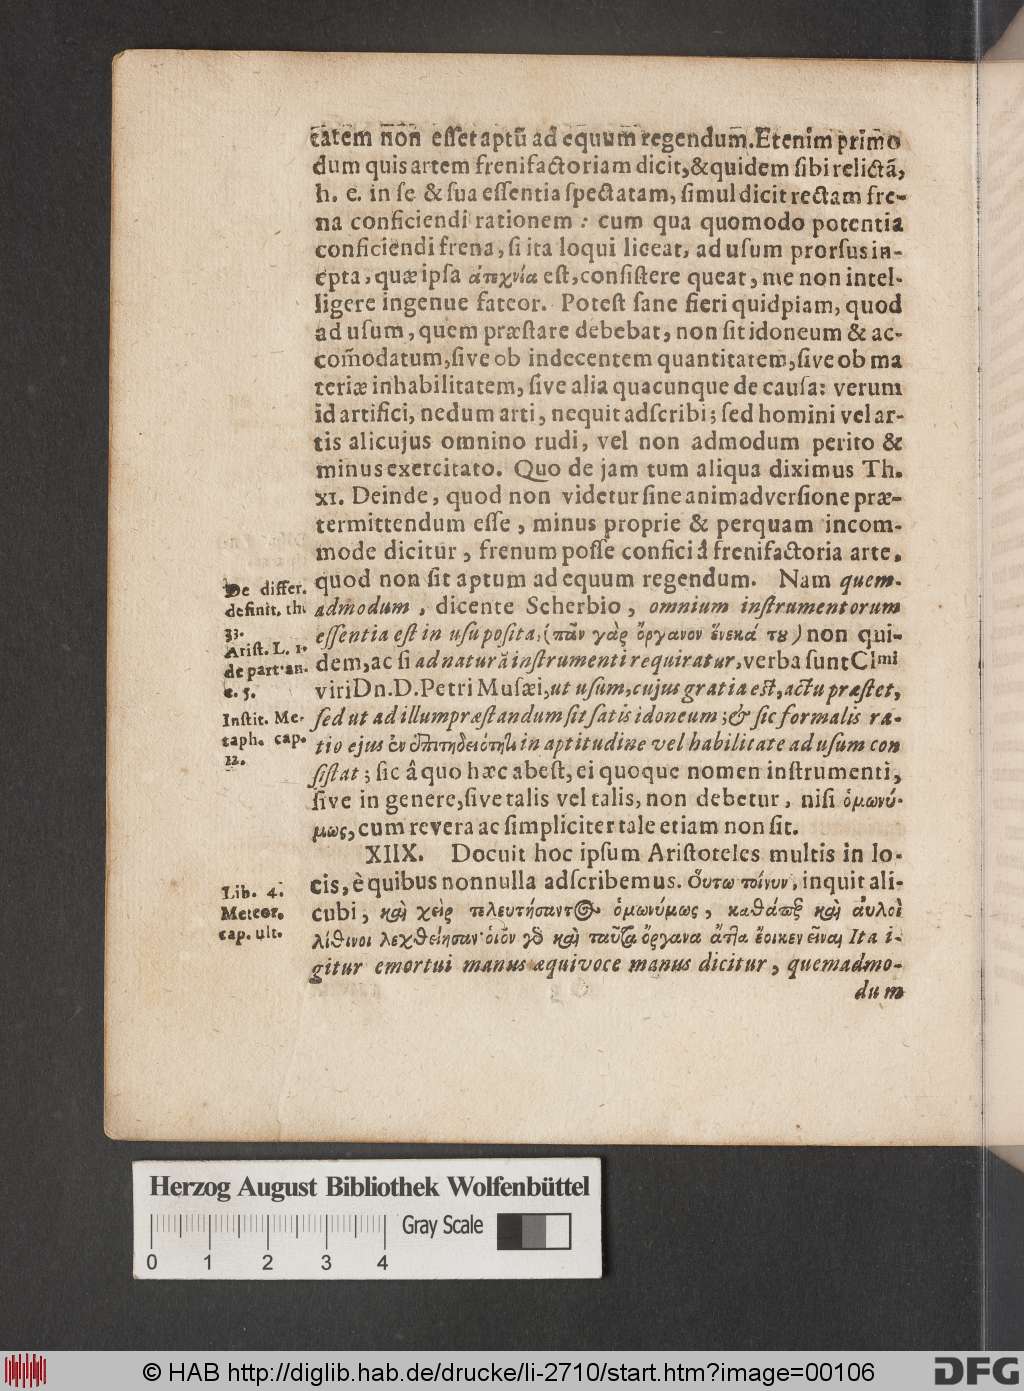 tatem non eſſet aptũ ad equum regendum. Etenim primo
dum quis artem frenifactoriam dicit, & quidem ſibi relictã,
h. e. in ſe & ſua eſſentia ſpectatam, ſimul dicit rectam fre-
na conficiendi rationem : cum qua quomodo potentia
conficiendi frena, ſi ita loqui liceat, ad uſum prorſus in-
epta, quæ ipſa ἀτεχνία eſt, conſiſtere queat, me non intel-
ligere ingenue fateor. Poteſt ſane fieri quidpiam, quod
ad uſum, quem præſtare debebat, non ſit idoneum & ac-
com̃odatum, ſive ob indecentem quantitatem, ſive ob ma
teriæ inhabilitatem, ſive alia quacunque de cauſa: verum
id artifici, nedum arti, nequit adſcribi; ſed homini vel ar-
tis alicujus omnino rudi, vel non admodum perito &
minus exercitato. Quo de jam tum aliqua diximus Th.
XI. Deinde, quod non videtur ſine animadverſione præ-
termittendum eſſe, minus proprie & perquam incom-
mode dicitur, frenum poſſe confici â frenifactoria arte,
quod non ſit aptum ad equum regendum. Nam quem-
De differ.
definit. th.
33.
admodum, dicente Scherbio, omnium inſtrumentorum
eſſentia eſt in uſu poſita, (πᾶν γὰρ ὄργανον ἕνεκά του) non qui-
Ariſt. L. 1.
de part. an.
c. 5.
dem, ac ſi ad naturã inſtrumenti requiratur, verba ſunt Clmi
viri Dn. D. Petri Muſæi, ut uſum, cujus gratia eſt, actu præſtet,
Inſtit. Me-
taph. cap.
12.
ſed ut ad illum præſtandum ſit ſatis idoneum ; & ſic formalis ra-
tio ejus ἐν ἐπιτηδειότητι in aptitudine vel habilitate ad uſum con
ſiſtat ; ſic â quo hæc abeſt, ei quoque nomen inſtrumenti,
ſive in genere, ſive talis vel talis, non debetur, niſi ὁμωνύ-
μως, cum revera ac ſimpliciter tale etiam non ſit.
XIIX. Docuit hoc ipſum Ariſtoteles multis in lo-
Lib. 4.
Meteor.
cap. ult.
cis, è quibus nonnulla adſcribemus. Οὕτω τοίνυν, inquit ali-
cubi, καὶ χεὶρ τελευτήσαντος ὁμωνύμως, καθάπερ καὶ ἀυλοὶ
λίθινοι λεχθείησαν· οἷον γὰρ καὶ ταῦτα ὄργανα ἄττα ἔοικεν εἶναι, Ita i-
gitur emortui manus æquivoce manus dicitur, quemadmo-
dum
Herzog August Bibliothek Wolfenbüttel
Gray Scale
0 1 2 3 4
© HAB http://diglib.hab.de/drucke/li-2710/start.htm?image=00106
DFG